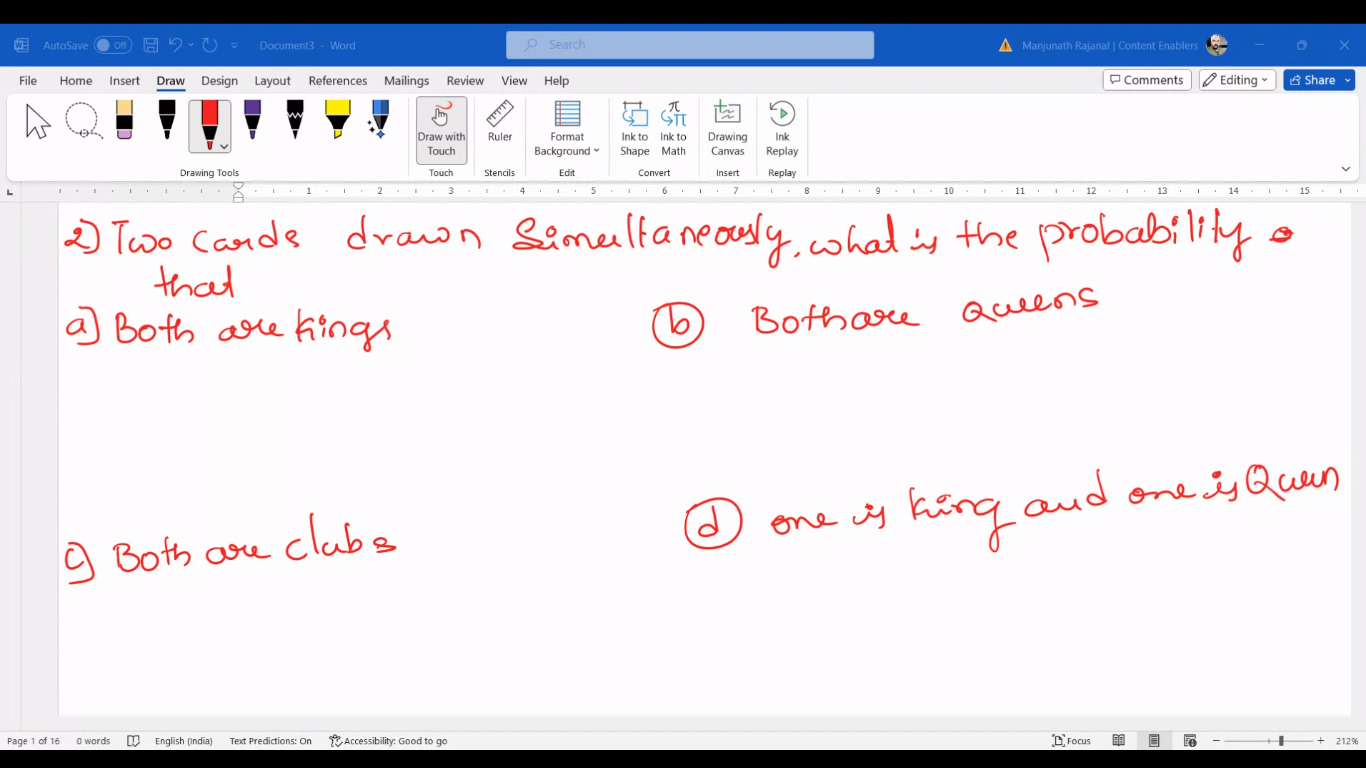 AutoSave Off Document3 - Word Search Manjunath Rajanal | Content Enablers
File Home Insert Draw Design Layout References Mailings Review View Help Comments Editing Share
Draw with Touch Ruler Format Background Ink to Shape Ink to Math Drawing Canvas Ink Replay
Drawing Tools Touch Stencils Edit Convert Insert Replay
1 2 3 4 5 6 7 8 9 10 11 12 13 14 15
2) Two cards drawn Simultaneously, what is the probability
that
a) Both are kings
b Both are Queens
c) Both are clubs
d one is king and one is Queen
Page 1 of 16 0 words English (India) Text Predictions: On Accessibility: Good to go Focus 212%